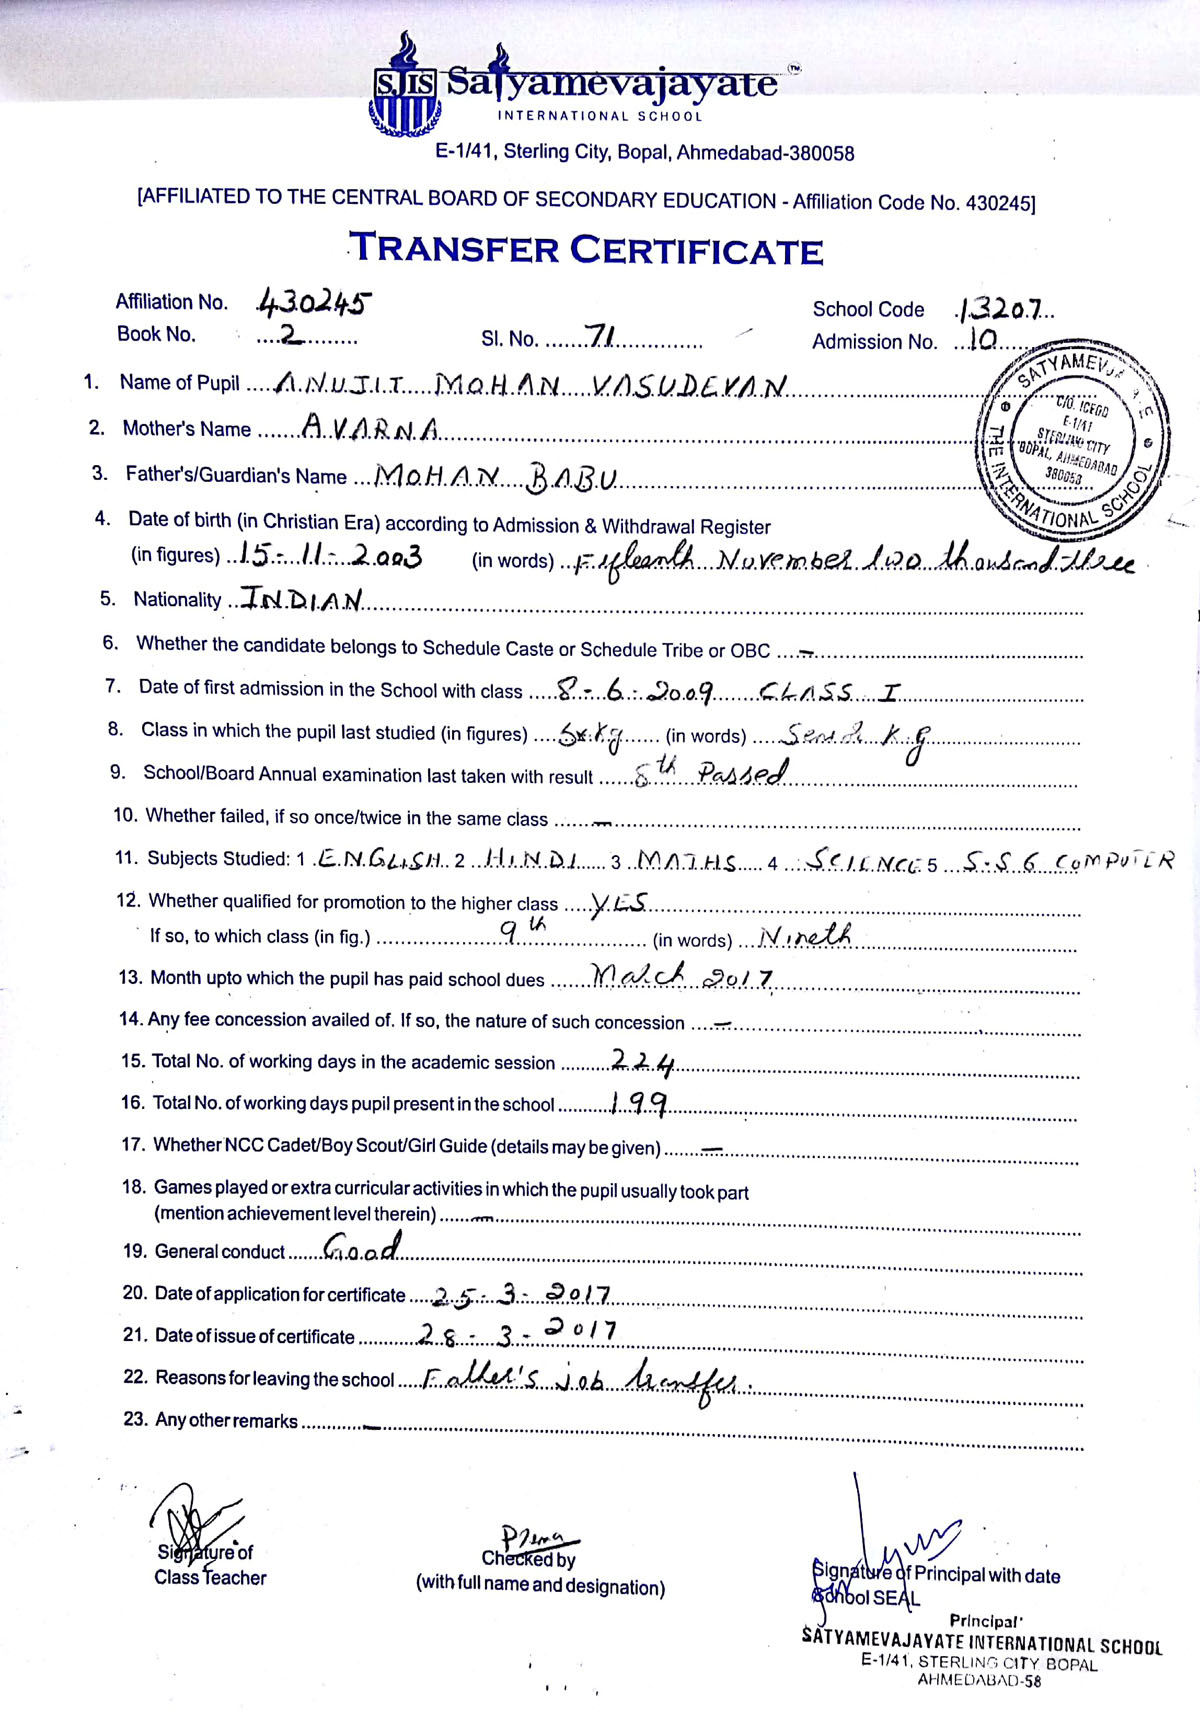 SJIS Satyamevajayate TM
INTERNATIONAL SCHOOL
E-1/41, Sterling City, Bopal, Ahmedabad-380058
[AFFILIATED TO THE CENTRAL BOARD OF SECONDARY EDUCATION - Affiliation Code No. 430245]
TRANSFER CERTIFICATE
Affiliation No. 430245 School Code 13207
Book No. 2 Sl. No. 71 Admission No. 10
SATYAMEV
THE INTERNATIONAL SCHOOL
C/O. ICEGO
E-1/41
STERLING CITY
BOPAL, AHMEDABAD
380058
1. Name of Pupil ANUJIT MOHAN VASUDEVAN
2. Mother's Name AVARNA
3. Father's/Guardian's Name MOHAN BABU
4. Date of birth (in Christian Era) according to Admission & Withdrawal Register
(in figures) 15-11-2003 (in words) Fifteenth November two thousand three
5. Nationality INDIAN
6. Whether the candidate belongs to Schedule Caste or Schedule Tribe or OBC -
7. Date of first admission in the School with class 8-6-2009 CLASS I
8. Class in which the pupil last studied (in figures) Sr.kg (in words) K.g
9. School/Board Annual examination last taken with result 8th Passed
10. Whether failed, if so once/twice in the same class -
11. Subjects Studied: 1 ENGLISH 2 HINDI 3 MATHS 4 SCIENCE 5 S.S 6 COMPUTER
12. Whether qualified for promotion to the higher class YES
If so, to which class (in fig.) 9th (in words) Nineth
13. Month upto which the pupil has paid school dues March 2017
14. Any fee concession availed of. If so, the nature of such concession -
15. Total No. of working days in the academic session 224
16. Total No. of working days pupil present in the school 199
17. Whether NCC Cadet/Boy Scout/Girl Guide (details may be given) -
18. Games played or extra curricular activities in which the pupil usually took part
(mention achievement level therein) -
19. General conduct Good
20. Date of application for certificate 25-3-2017
21. Date of issue of certificate 28-3-2017
22. Reasons for leaving the school Father's job transfer.
23. Any other remarks -
Prema
Signature of Checked by Signature of Principal with date
Class Teacher (with full name and designation) School SEAL
Principal
SATYAMEVAJAYATE INTERNATIONAL SCHOOL
E-1/41, STERLING CITY BOPAL
AHMEDABAD-58